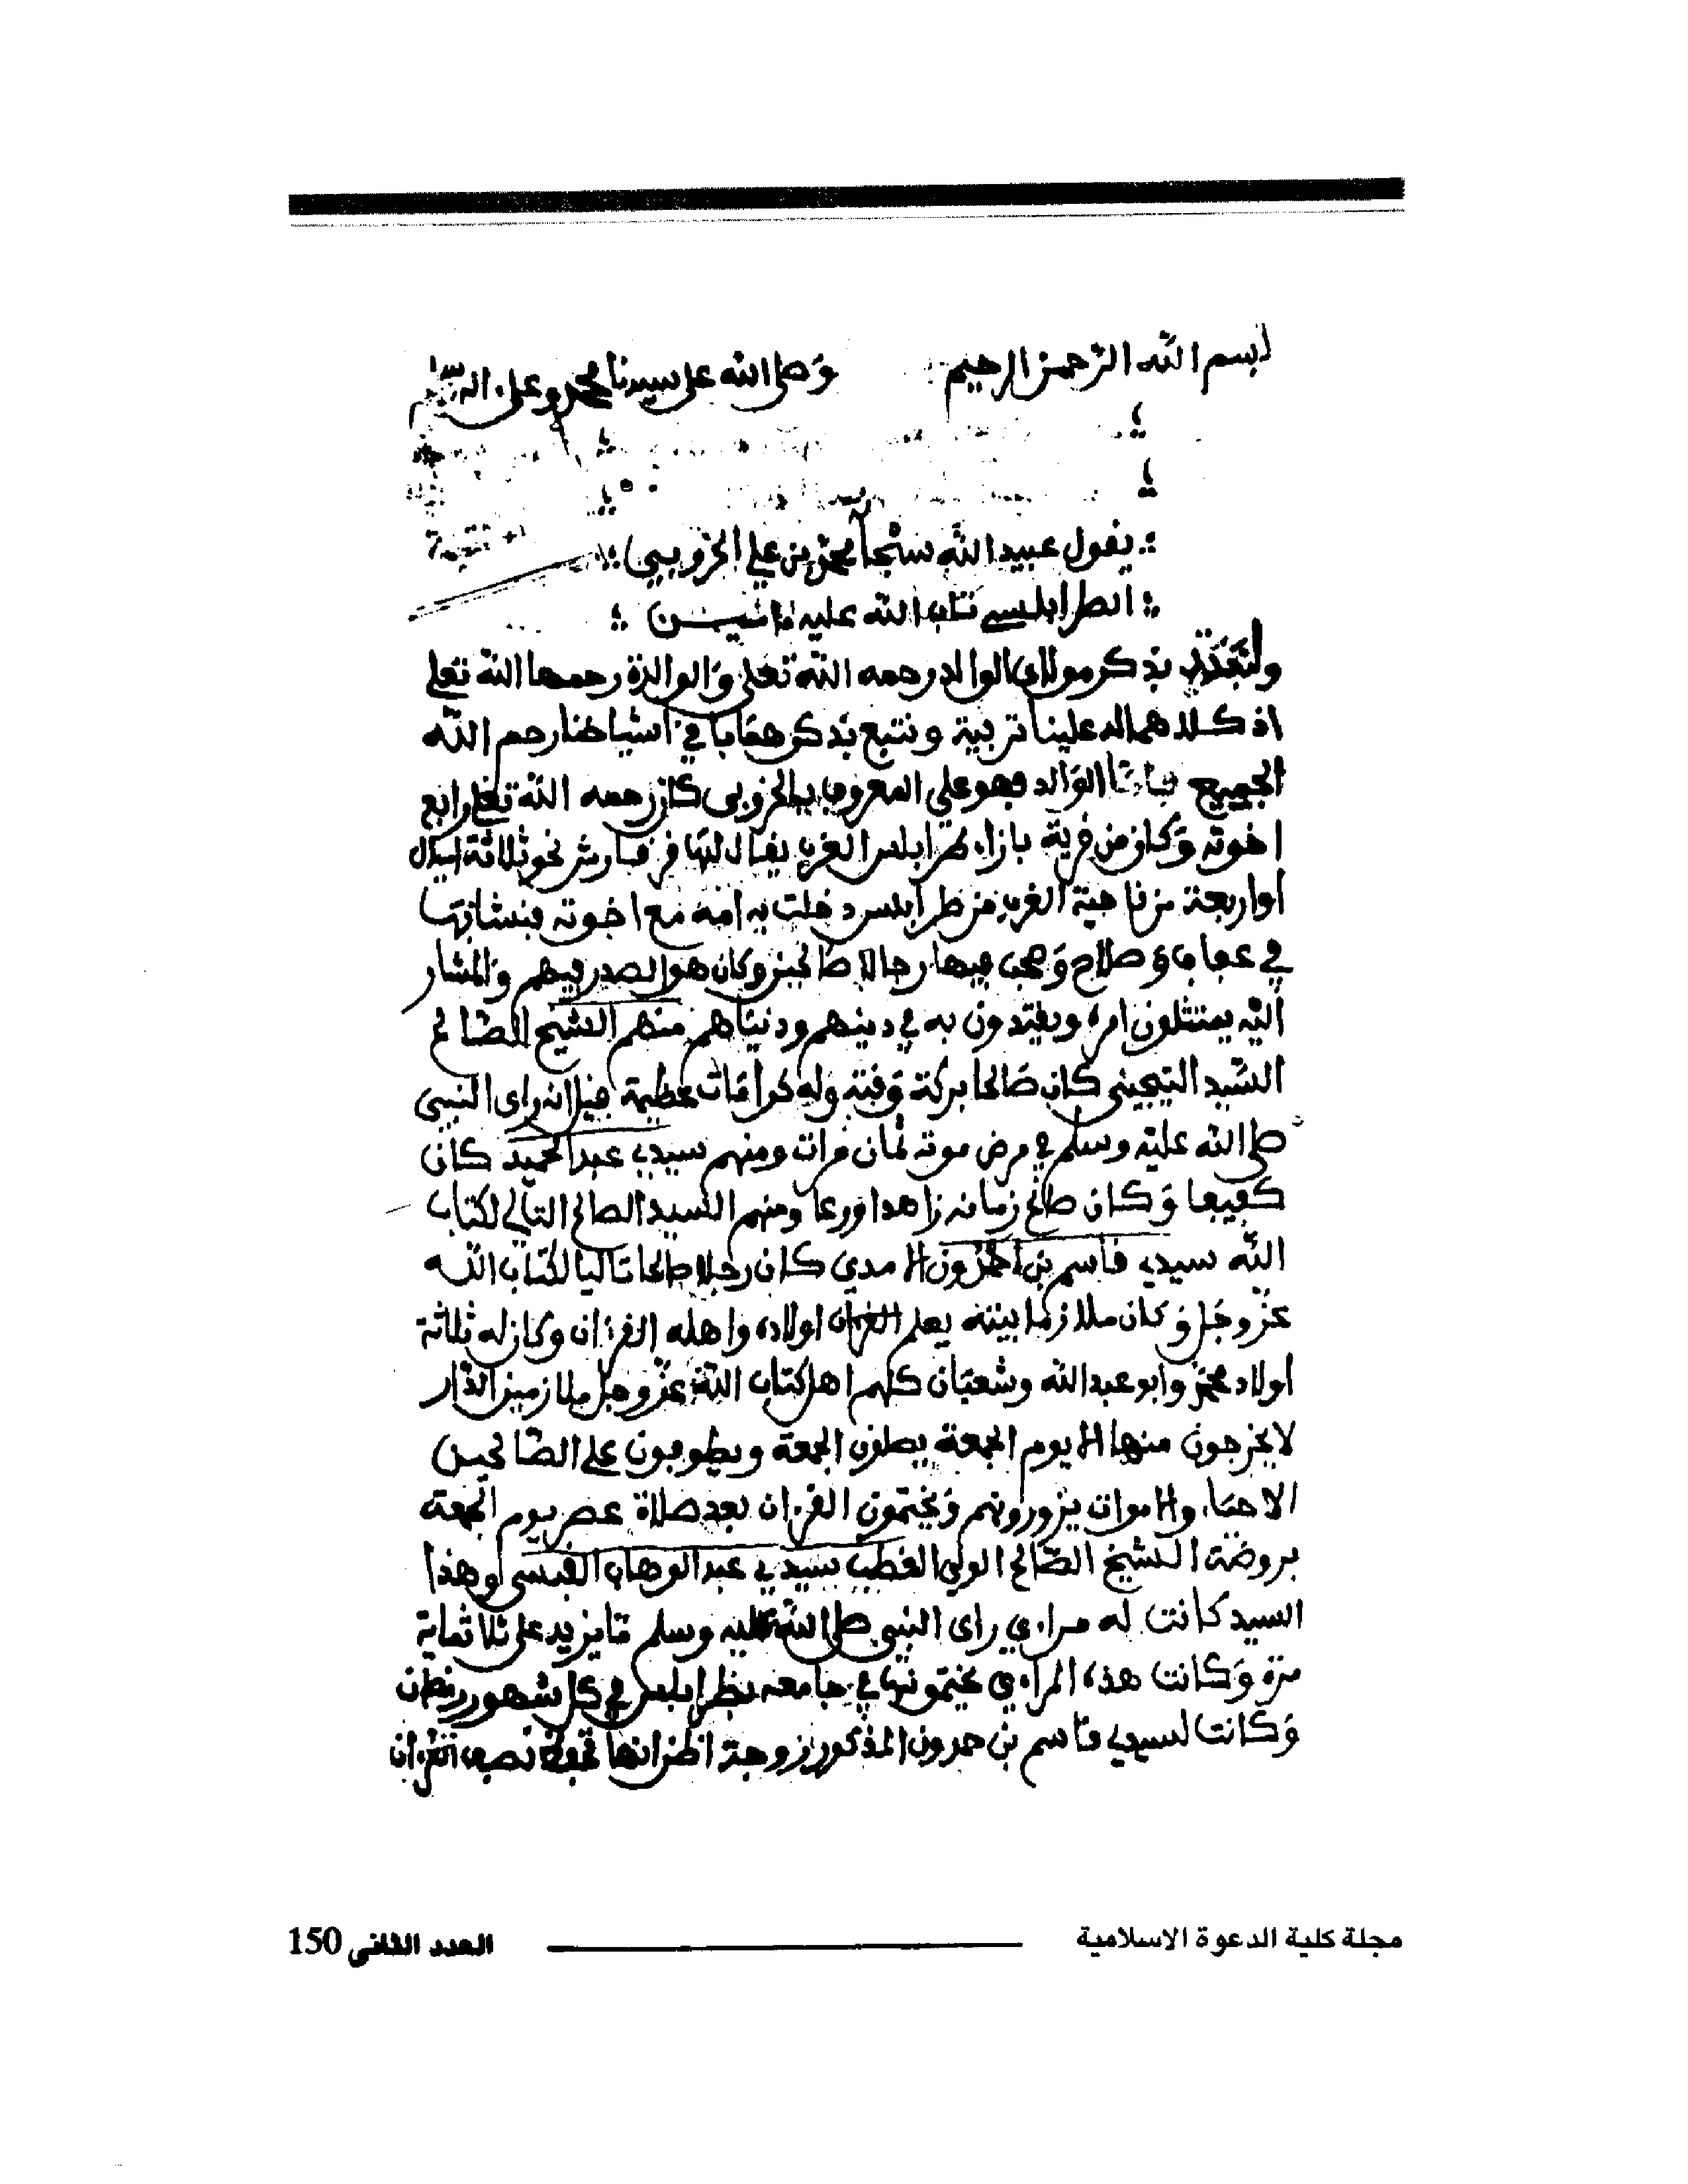 بسم الله الرحمن الرحيم وصلى الله على سيدنا محمد وعلى اله
يقول عبيد الله سبحانه محمد بن علي الخروبي
الطرابلسي تاب الله عليه ءامين
ولنبتدئ بذكر مولاي الوالد رحمه الله تعلى والوالدة رحمها الله تعلى
اذ كلاهما له علينا تربية ونتبع بذكرهما باقي اشياخنا رحم الله
الجميع فاما الوالد فهو علي المعروف بالخروبي كان رحمه الله تعلى رابع
اخوته وكان من قرية بازاء طرابلس الغرب يقال لها قرقارش نحو ثلاثة اميال
او اربعة من ناحية الغرب من طرابلس دخلت به امه مع اخوته فنشا بها
في عفاف وصلاح وصحب فيها رجالا صالحين وكان هو الصدر فيهم والمشار
اليه يمتثلون امره ويقتدون به في دينهم ودنياهم منهم الشيخ الصالح
السيد التيجيني كان صالحا بركة وقته وله كرامات عظيمة قيل انه راى النبي
صلى الله عليه وسلم في مرض موته ثمان مرات ومنهم سيدي عبد الحميد كان
كفيفا وكان صالح زمانه زاهدا ورعا ومنهم السيد الصالح التالي لكتاب
الله سيدي قاسم بن حمدون كان رجلا صالحا تاليا لكتاب الله
عز وجل وكان ملازما بيته يعلم اولاده واهله القرءان وكان له ثلاثة
اولاد محمد وابو عبد الله وشعبان كلهم اهل كتاب الله عز وجل ملازمين الدار
لا يخرجون منها الا يوم الجمعة يصلون الجمعة ويطوفون على الصالحين
الاحياء والاموات يزورونهم ويختمون القرءان بعد صلاة عصر يوم الجمعة
بروضة الشيخ الصالح الولي القطب سيدي عبد الوهاب القيسي وهذا
السيد كانت له مراءي راى النبي صلى الله عليه وسلم ما يزيد على ثلاثماية
مرة وكانت هذه المراءي يختمونها في جامعه بطرابلس في كل شهور رمضان
وكانت لسيدي قاسم بن حمدون المذكور زوجة اظن انها تحفظ نصف القرءان
مجلة كلية الدعوة الاسلامية العدد الثاني 150